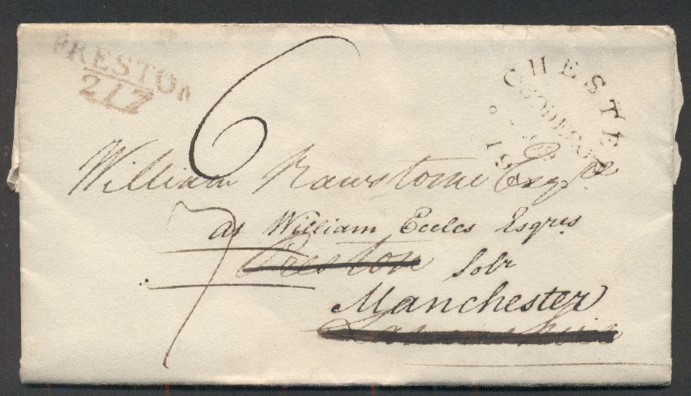 PRESTON
217
CHESTE
6
William Rawstorne Esqre
at William Eccles Esqres
7
Preston Solr
Manchester
Lancashire